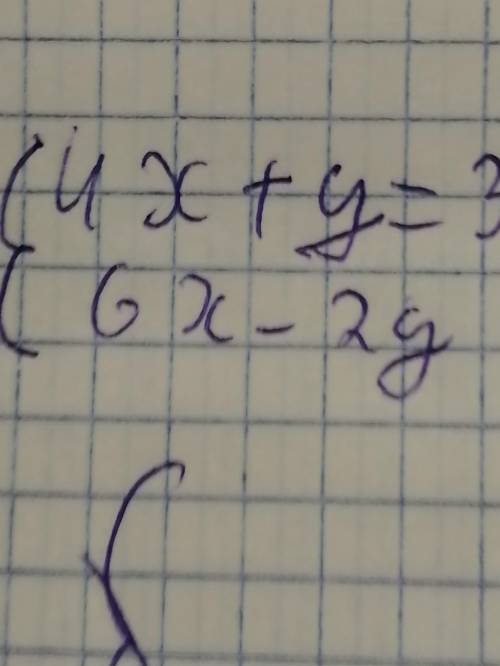 4x + y = 3
6x - 2y